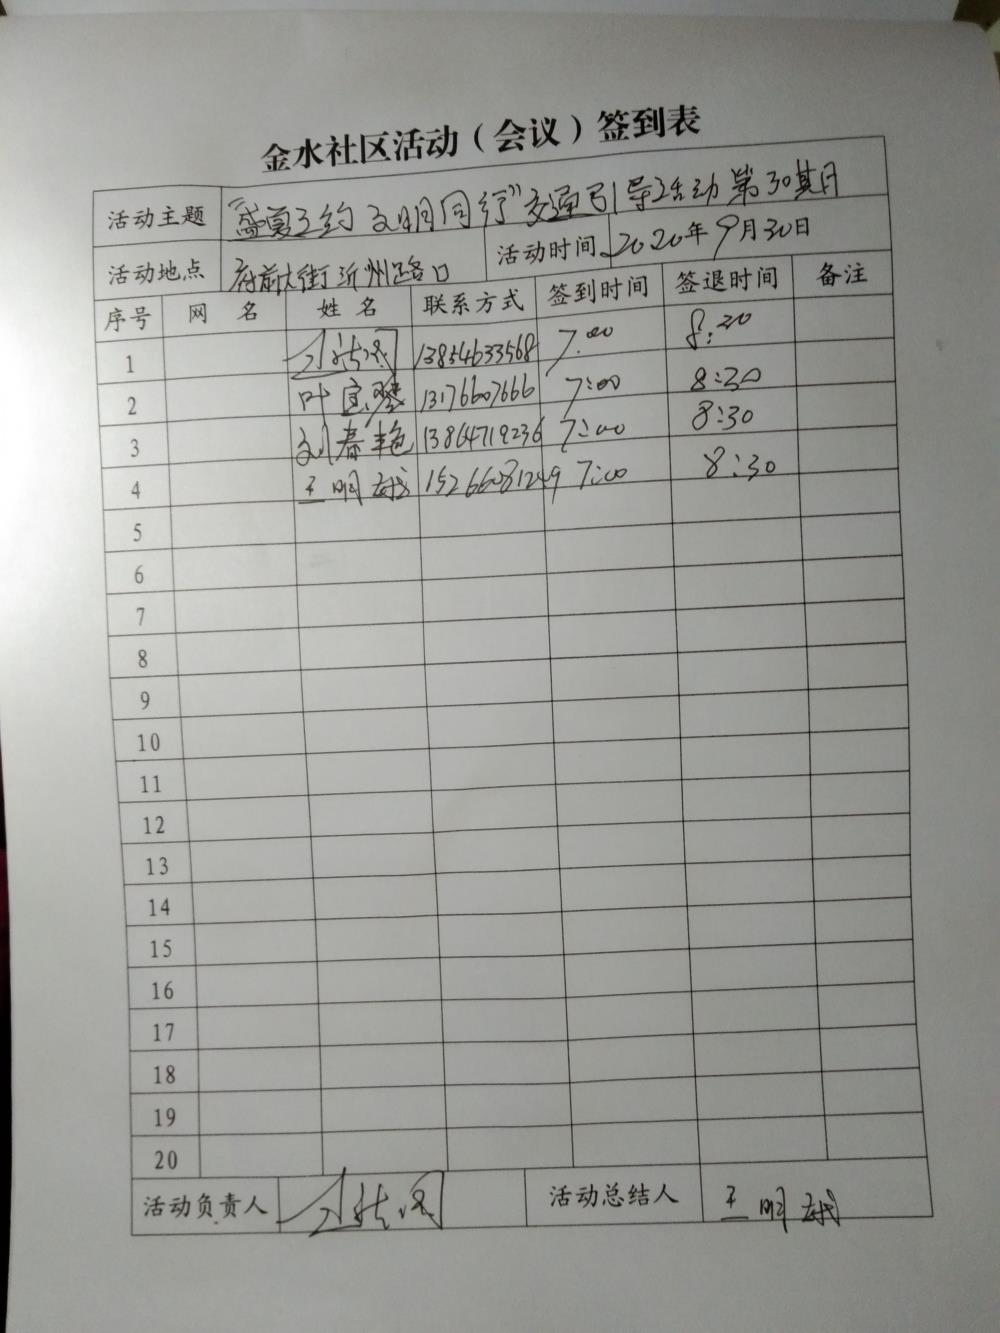 金水社区活动（会议）签到表
活动主题 “盛夏之约 文明同行”交通引导活动 第30期
活动地点 府前大街沂州路口 活动时间 2020年9月30日
序号 网名 姓名 联系方式 签到时间 签退时间 备注
1 13854633568 7:00 8:30
2 叶 13176607666 7:00 8:30
3 刘春艳 13864719236 7:00 8:30
4 王明娥 15266081249 7:00 8:30
5
6
7
8
9
10
11
12
13
14
15
16
17
18
19
20
活动负责人 活动总结人 王明娥